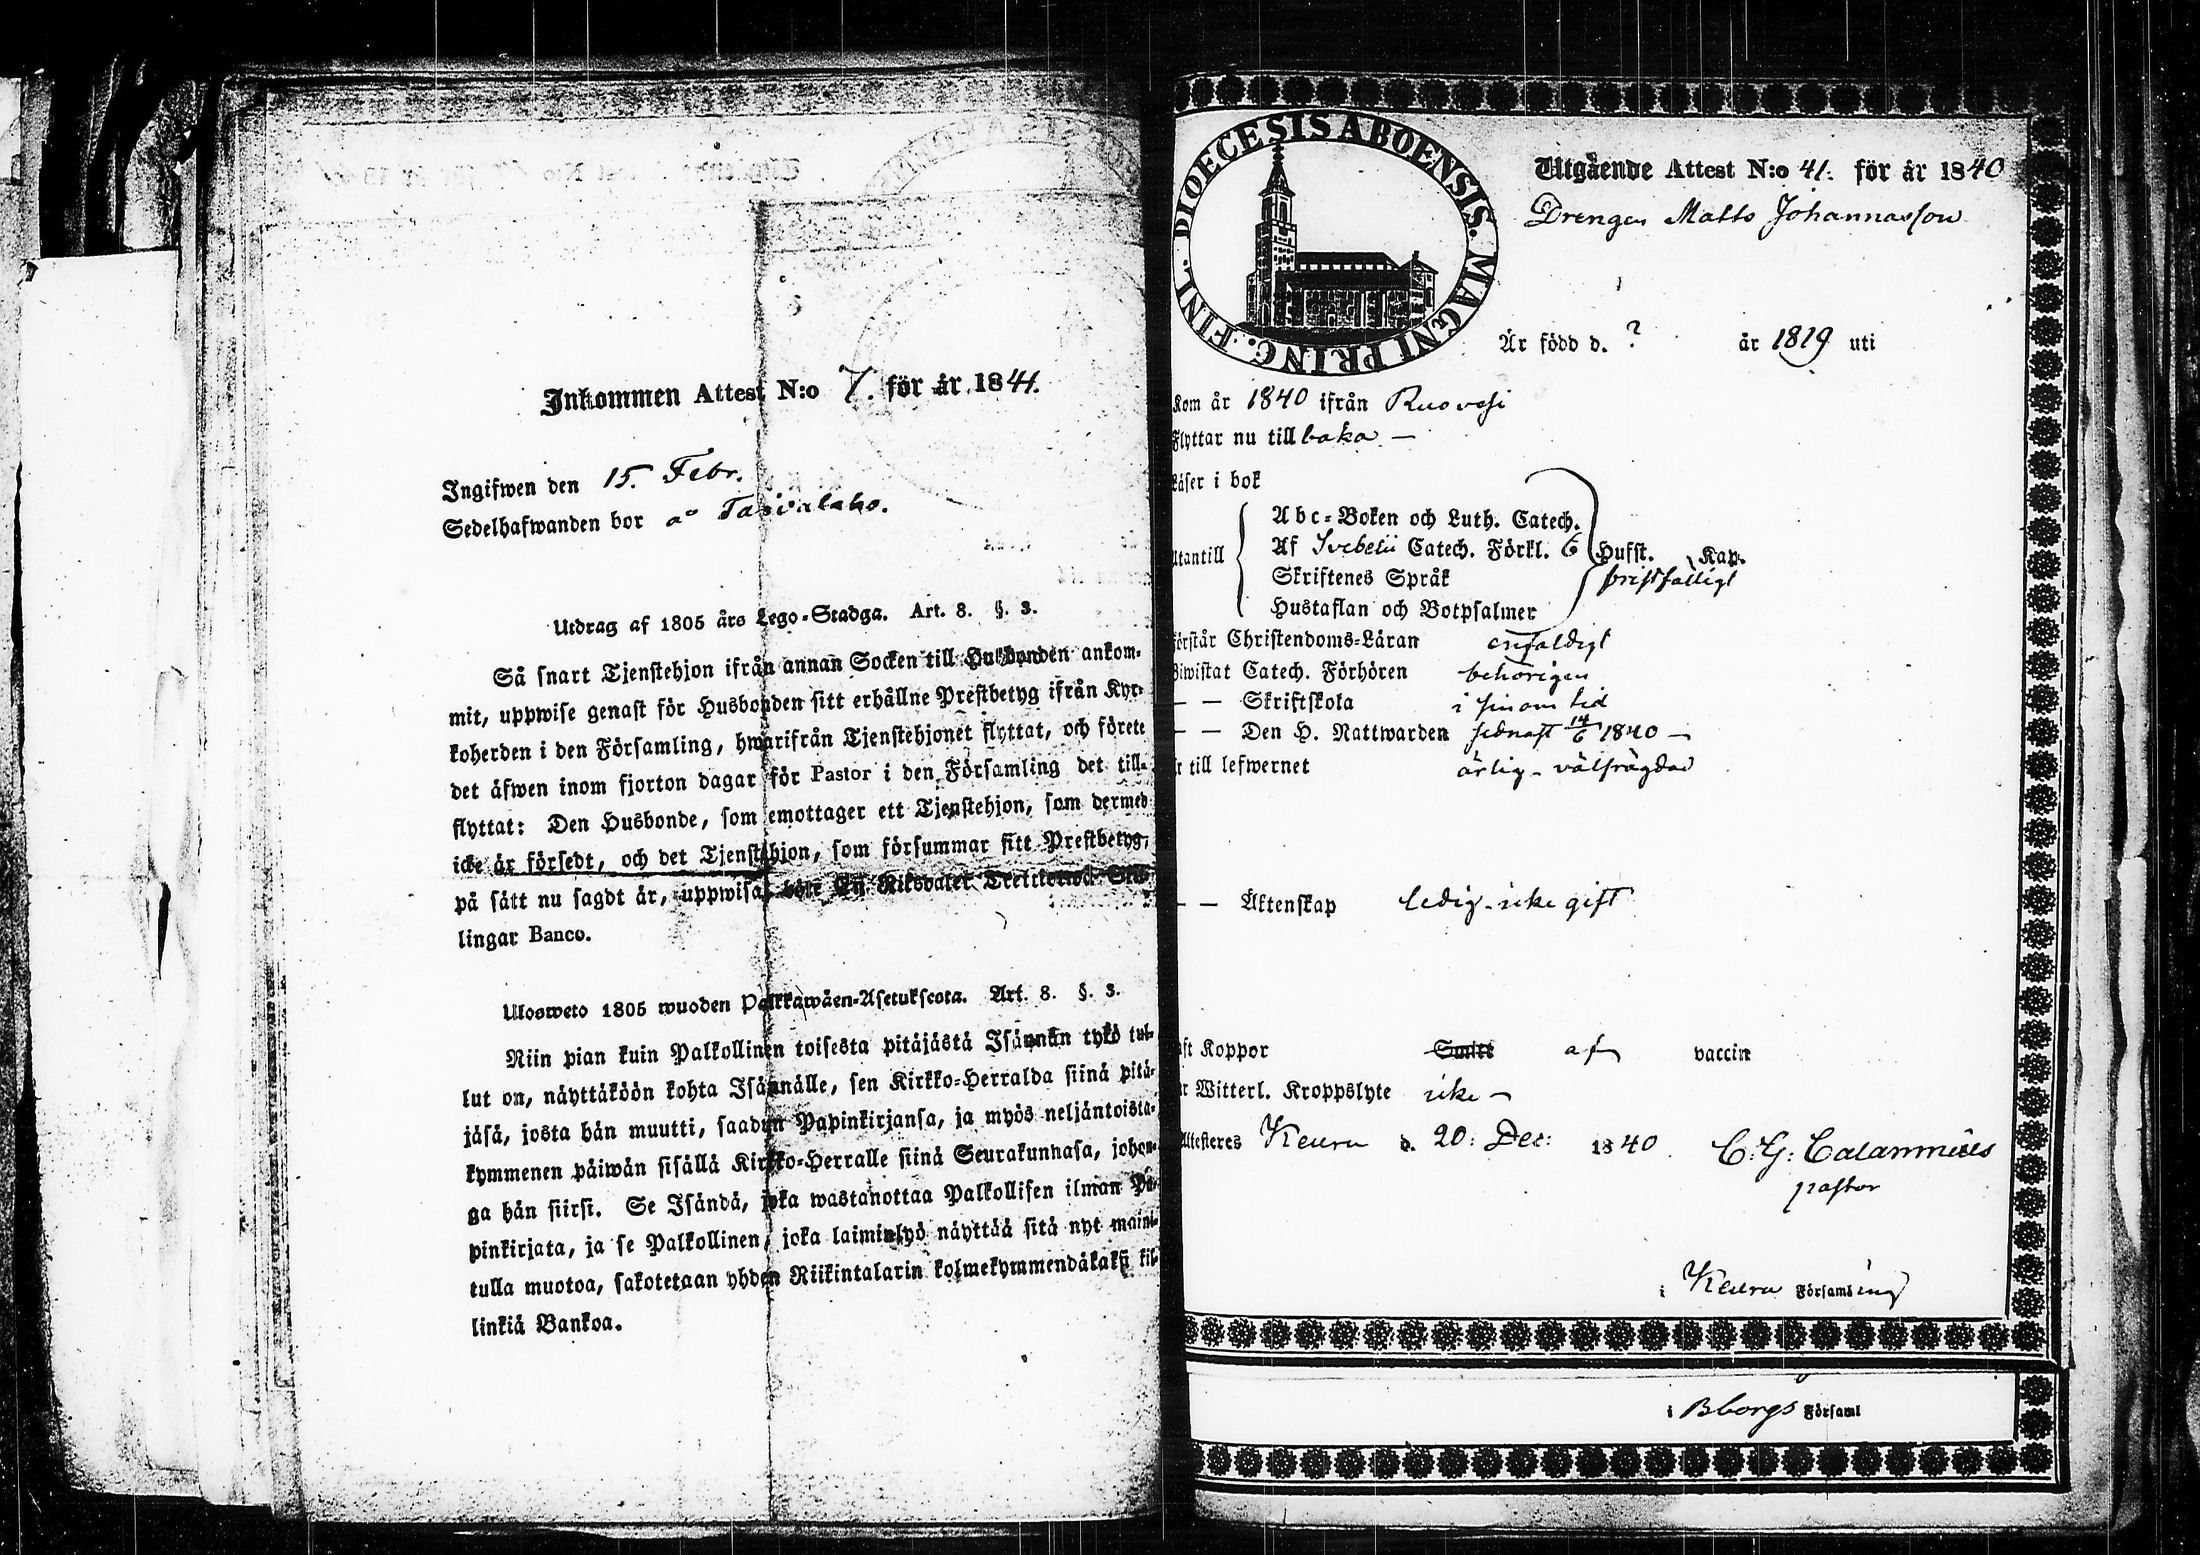 Inkommen Attest N:o 7. för år 1841.
Ingifwen den 15. Febr.
Sedelhafwanden bor å Taivalaho.
Utdrag af 1805 års Lego-Stadga. Art. 8. §. 3.
Så snart Tjenstehjon ifrån annan Socken till Husbonden ankom-
mit, uppwise genast för Husbonden sitt erhållne Prestbetyg ifrån Kyr-
koherden i den Församling, hwarifrån Tjenstehjonet flyttat, och förete
det äfwen inom fjorton dagar för Pastor i den Församling det till-
flyttat: Den Husbonde, som emottager ett Tjenstehjon, som dermed
icke är försedt, och det Tjenstehjon, som försummar sitt Prestbetyg,
på sätt nu sagdt är, uppwisa, böte En Riksdaler Trettiotwå Skil-
lingar Banco.
Ulosweto 1805 wuoden Palkkawäen-Asetuksesta. Art. 8. §. 3.
Niin pian kuin Palkollinen toisesta pitäjästä Isännän tykö tul-
lut on, näyttäköön kohta Isännälle, sen Kirkko-Herralda siinä pitä-
jäsä, josta hän muutti, saadun Papinkirjansa, ja myös neljäntoista-
kymmenen päiwän sisällä Kirkko-Herralle siinä Seurakunnasa, johon-
ga hän siirsi. Se Isändä, joka wastanottaa Palkollisen ilman Pa-
pinkirjata, ja se Palkollinen, joka laiminlyö näyttää sitä nyt maini-
tulla muotoa, sakotetaan yhden Riikintalarin kolmekymmendäkaksi kil-
linkiä Bankoa.
DIOECESIS ABOENSIS. MAGNI PRINC. FINL.
Utgående Attest N:o 41. för år 1840
Drengen Matts Johannasson
Är född d. ? år 1819 uti
Kom år 1840 ifrån Ruovesi
Flyttar nu tillbaka —
Läser i bok
Abc-Boken och Luth. Catech.
Utantill Af Svebelii Catech. Förkl. 6 Hufst. Kap.
Skriftenes Språk bristfälligt
Hustaflan och Botpsalmer
Förstår Christendoms-Läran enfaldigt
Biwistat Catech. Förhören behörigen
— — Skriftskola i sinom tid
— — Den H. Nattwarden sednast 14/6 1840 —
Är till lefwernet ärlig - välfrägdad
— — Äktenskap ledig - icke gift
Haft Koppor af vaccin
Har Witterl. Kroppslyte icke —
Attesteres Keuru d. 20: Dec: 1840. C: G: Calamnius
pastor
i Keuru Församling
i Bborgs Församl